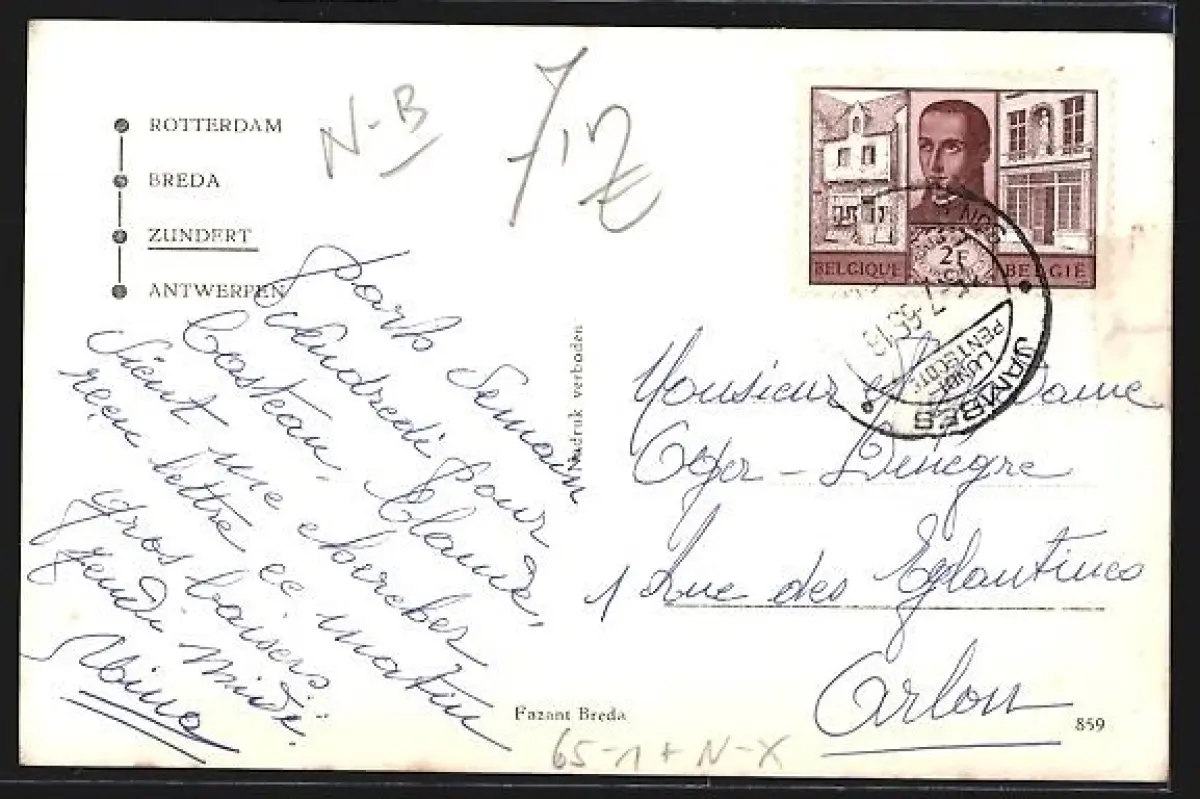 ROTTERDAM
BREDA
ZUNDERT
ANTWERPEN
N-B
BELGIQUE 2F BELGIË
JAMBES
LUNDI
PENTECOTE
Nadruk verboden
Pars demain
Vendredi pour
Costeau. Claude,
vient me chercher
reçu lettre ce matin
gros baisers.
jeudi midi.
Monsieur et Madame
Oger - Denègre
1 Rue des Eglantines
Arlon
Fazant Breda
859
65-1+N-X